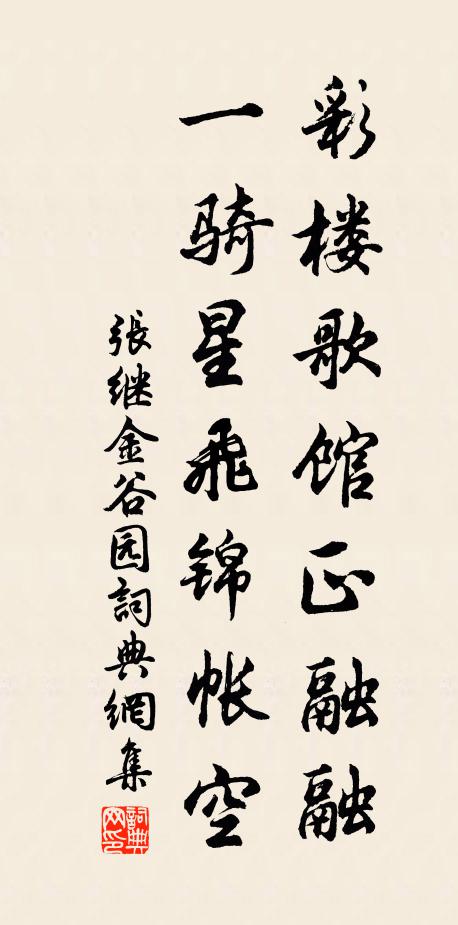 彩楼歌馆正融融
一骑星飞锦帐空
張继金谷园詞典網集
詞典网印